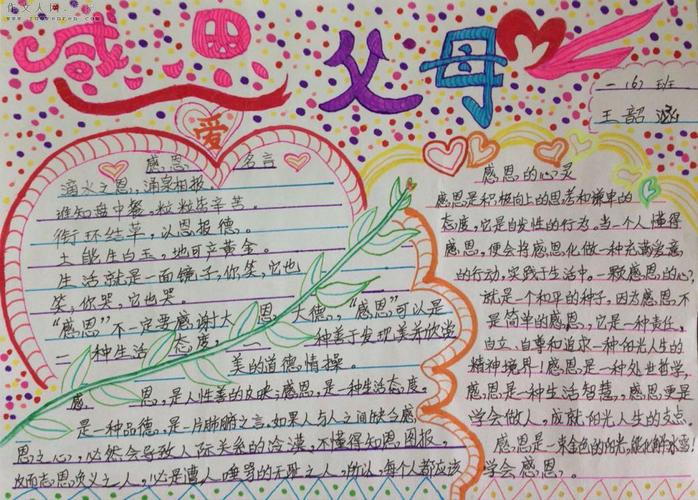 作文人网
感恩父母
一(6)班
王韶涵
爱
感恩 名言
滴水之恩,涌泉相报
谁知盘中餐,粒粒皆辛苦。
衔环结草,以恩报德。
土能生白玉,地可产黄金。
生活就是一面镜子,你笑,它也
笑,你哭,它也哭。
"感恩"不一定要感谢大恩大德,"感恩"可以是
一种生活态度,一种善于发现美并欣赏
美的道德情操。
感恩,是人性善的反映;感恩,是一种生活态度,
是一种品德,是一片肺腑之言,如果人与人之间缺乏感
恩之心,必然会导致人际关系的冷漠,不懂得知恩图报,
反而忘恩负义之人,必是遭人唾骂的无耻之人,所以,每个人都应该
学会感恩。
感恩的心灵
感恩是积极向上的思考和谦卑的
态度,它是自发性的行为。当一个人懂得
感恩,便会将感恩化做一种充满爱意
的行动,实践于生活中,一颗感恩的心,
就是一个和平的种子,因为感恩,不
是简单的感恩,它是一种责任,
自立、自尊和追求一种阳光人生的
精神境界!感恩是一种处世哲学,
感恩是一种生活智慧,感恩更是
学会做人,成就阳光人生的支点。
感恩是一束金色的阳光,能化解冰雪!